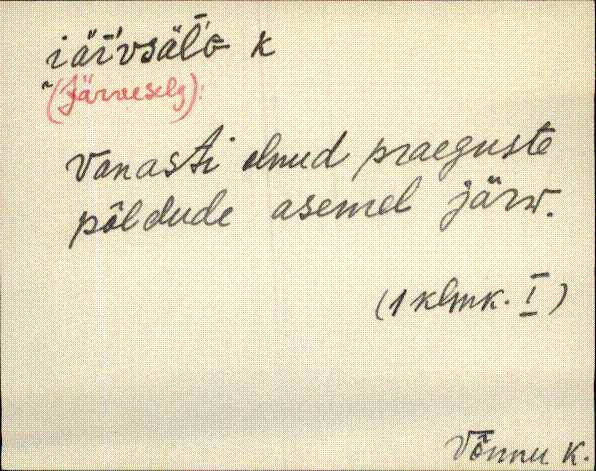 iäŕvsäĺɢ k
(Järveselg).
Vanasti olnud praeguste
põldude asemel järv.
(1 klmk. I)
Võnnu K.